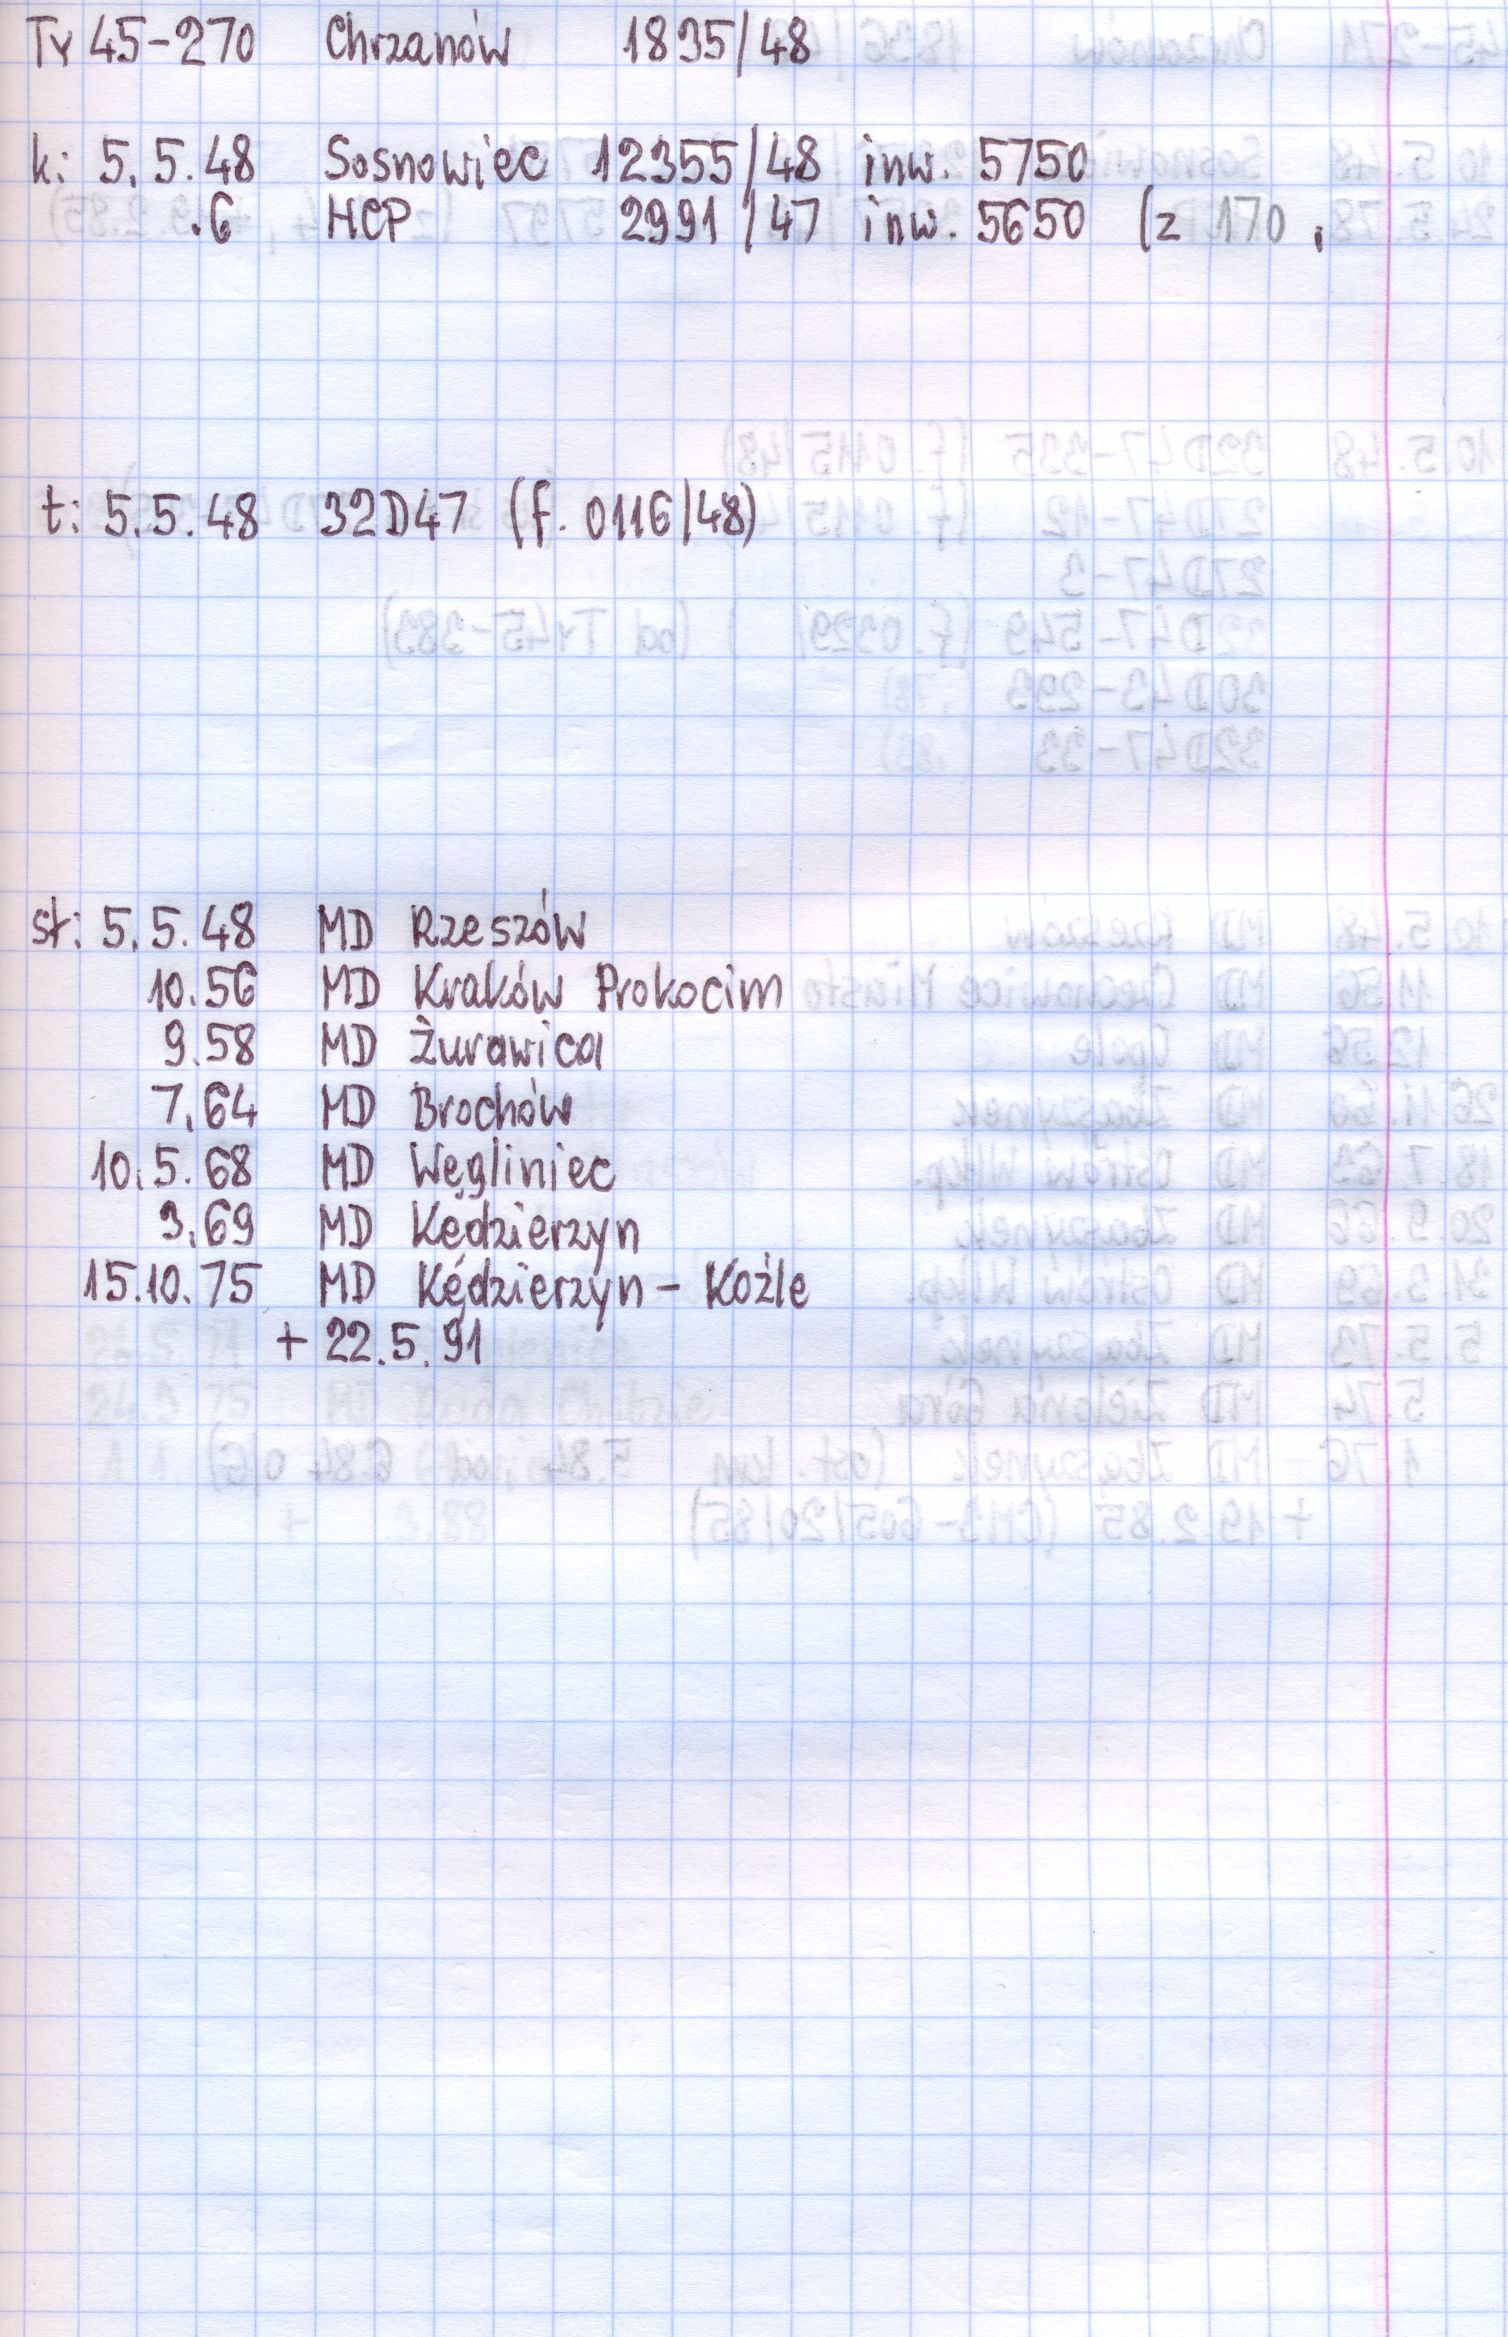 Ty 45-270 Chrzanów 1835/48
k: 5.5.48 Sosnowiec 12355/48 inw. 5750
.6 HCP 2991/47 inw. 5650 (z 170,
t: 5.5.48 32D47 (f. 0116/48)
st: 5.5.48 MD Rzeszów
10.56 MD Kraków Prokocim
9.58 MD Żurawica
7.64 MD Brochów
10.5.68 MD Węgliniec
3.69 MD Kędzierzyn
15.10.75 MD Kędzierzyn - Koźle
+ 22.5.91